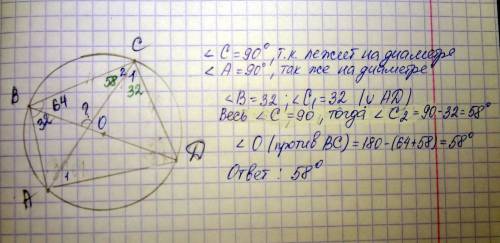 C
2 1
58
32
B
64
32
?
O
D
1
A
∠C=90°, т.к. лежит на диаметре
∠A=90°, так же на диаметре
∠B=32; ∠C₁=32 (∪ AD)
Весь ∠C=90, тогда ∠C₂=90-32=58°
∠O (против BC)=180-(64+58)=58°
Ответ: 58°